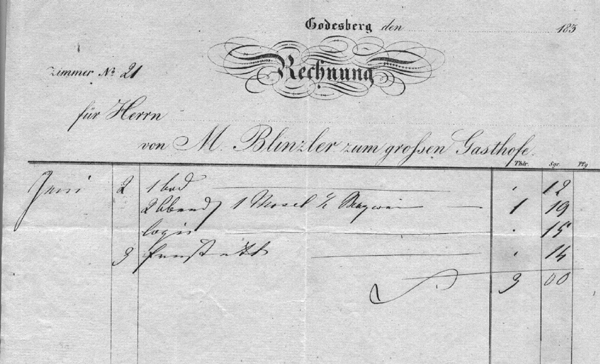 Godesberg den 183
Zimmer No 21
Rechnung
für Herrn
von M. Blinzler zum grossen Gasthofe.
Thlr. Sgr. Pfg
Juni 2 1 bad . 12
1 Mosel ½ 1 19
logis . 15
3 . 14
3 00